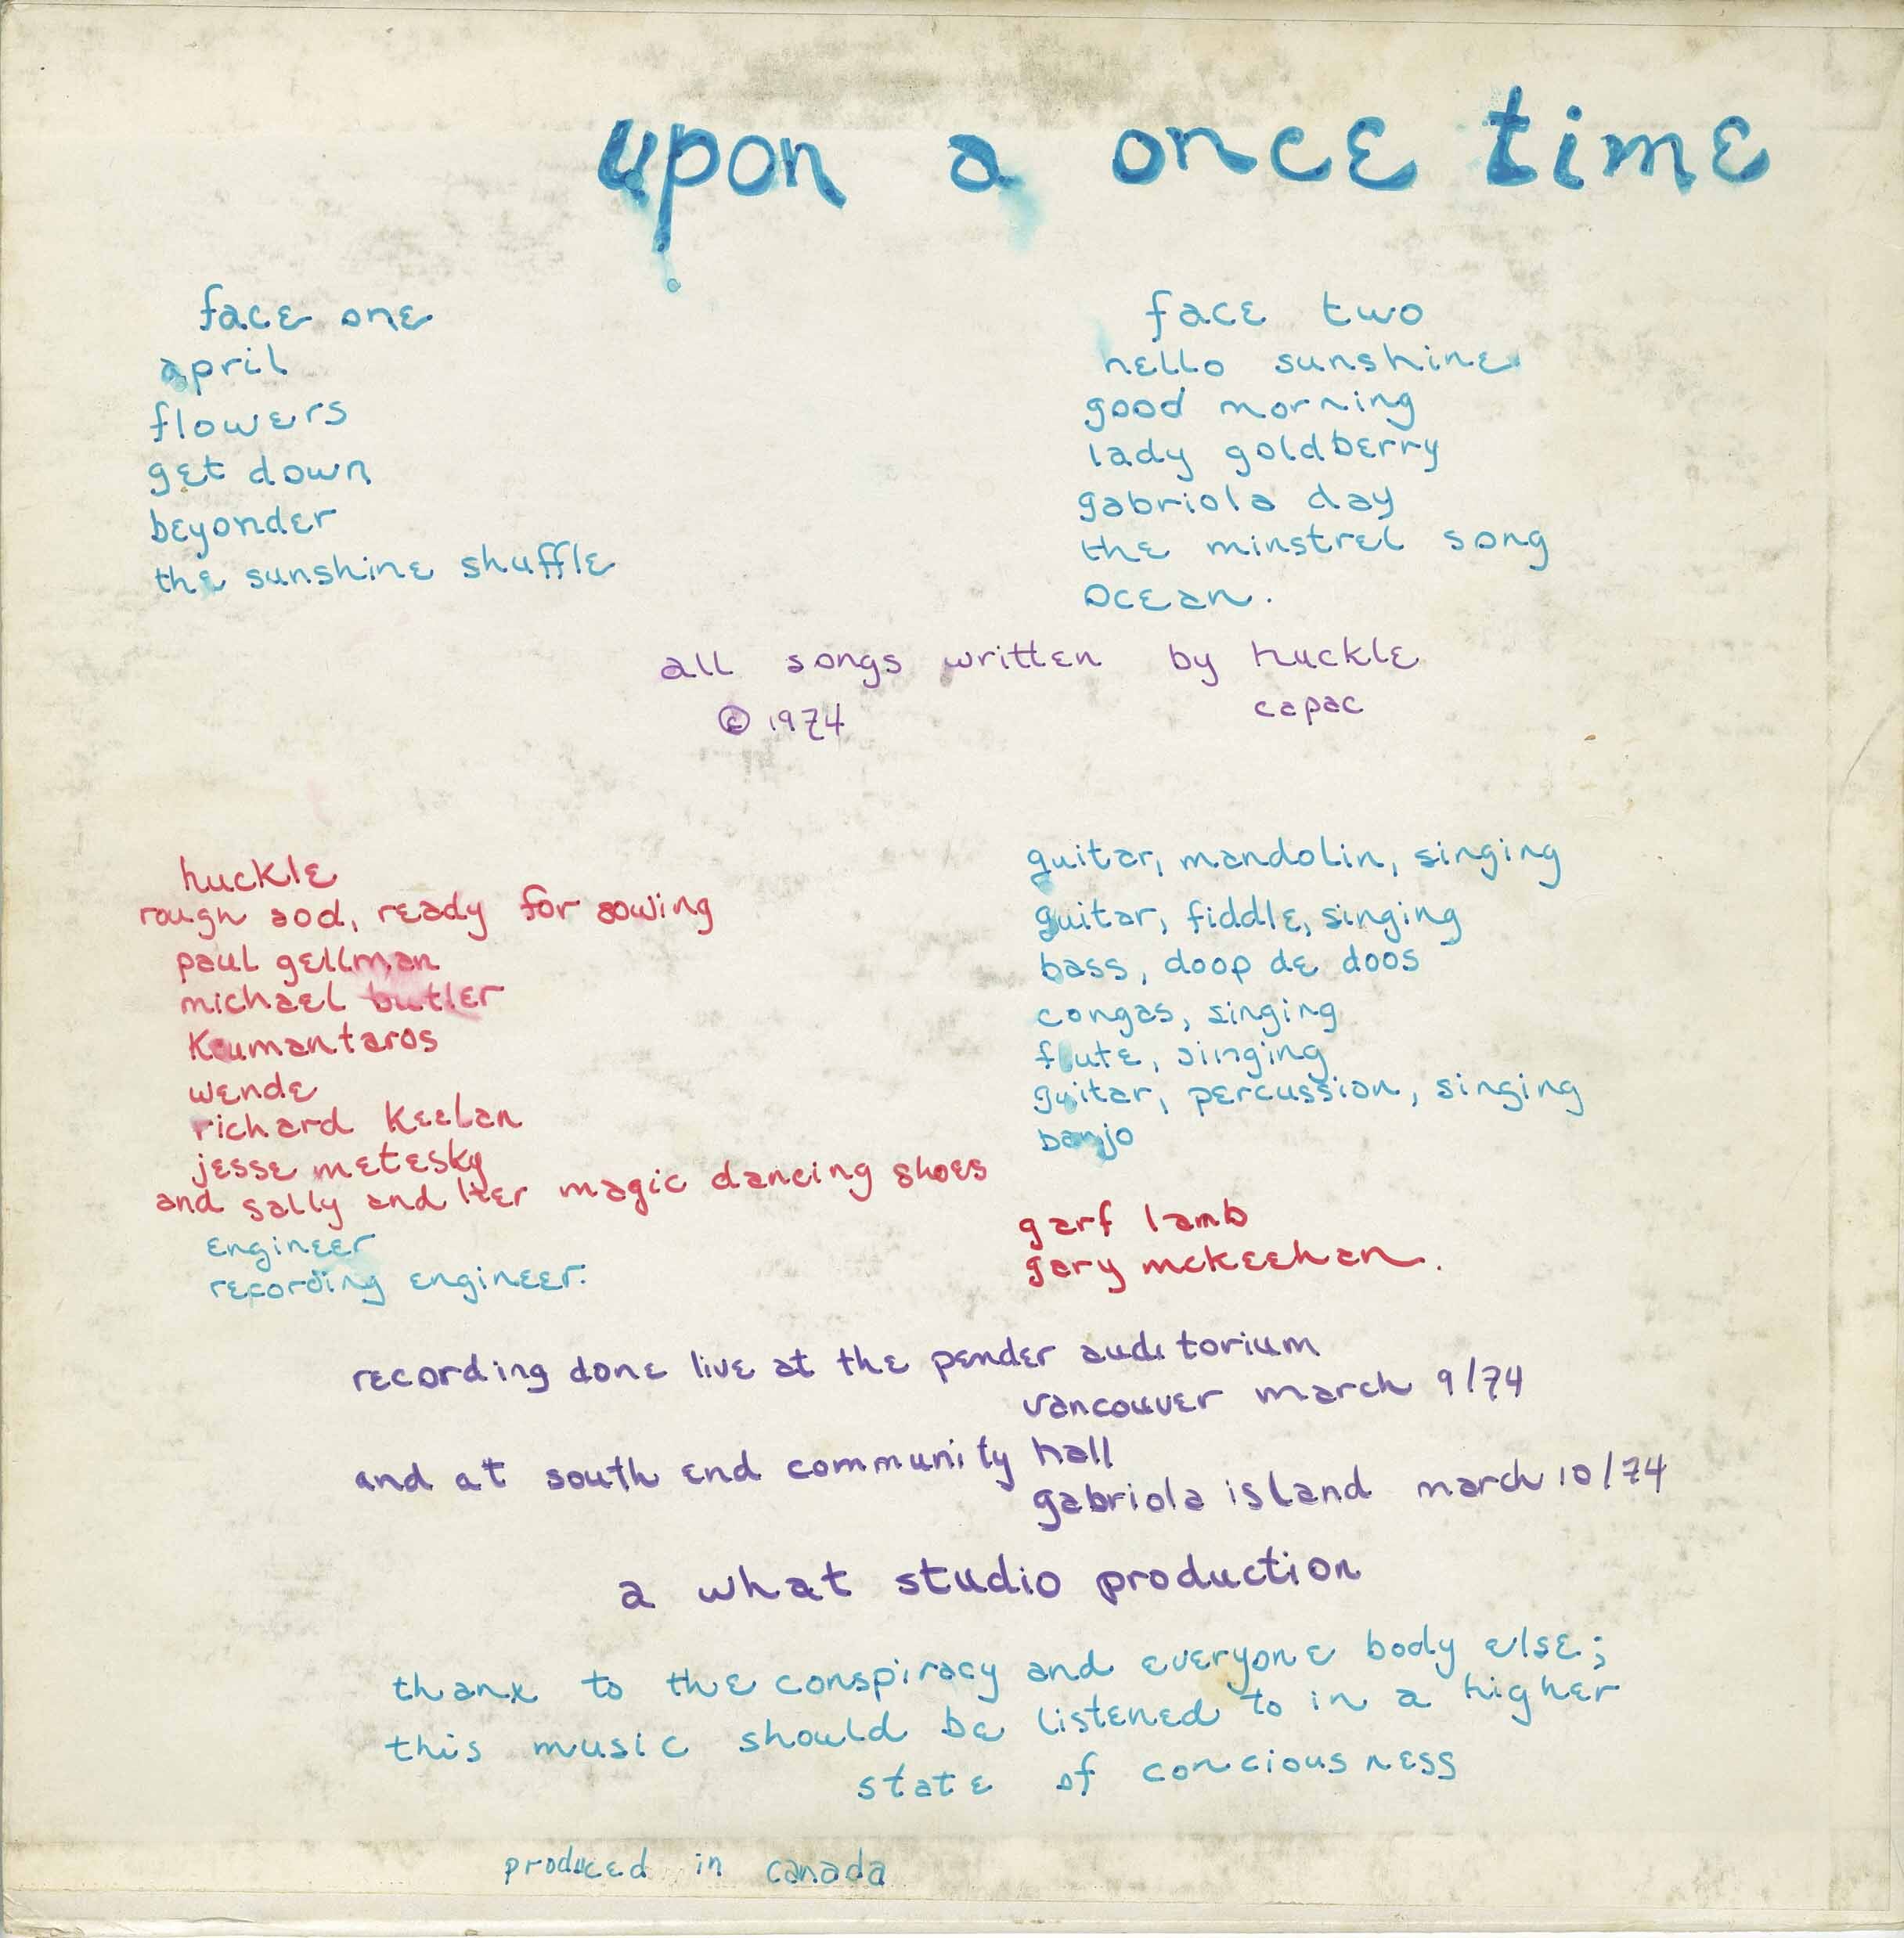 upon a once time
face one
april
flowers
get down
beyonder
the sunshine shuffle
face two
hello sunshine
good morning
lady goldberry
gabriola day
the minstrel song
ocean.
all songs written by huckle
© 1974
capac
huckle
rough sod, ready for sowing
paul gellman
michael butler
Koumantaros
wende
richard Keelan
jesse metesky
and sally and her magic dancing shoes
guitar, mandolin, singing
guitar, fiddle, singing
bass, doop de doos
congas, singing
flute, singing
guitar, percussion, singing
banjo
engineer
recording engineer:
garf lamb
gary mckeehan.
recording done live at the pender auditorium
vancouver march 9/74
and at south end community hall
gabriola island march 10/74
a what studio production
thanx to the conspiracy and everyone body else;
this music should be listened to in a higher
state of conciousness
produced in canada